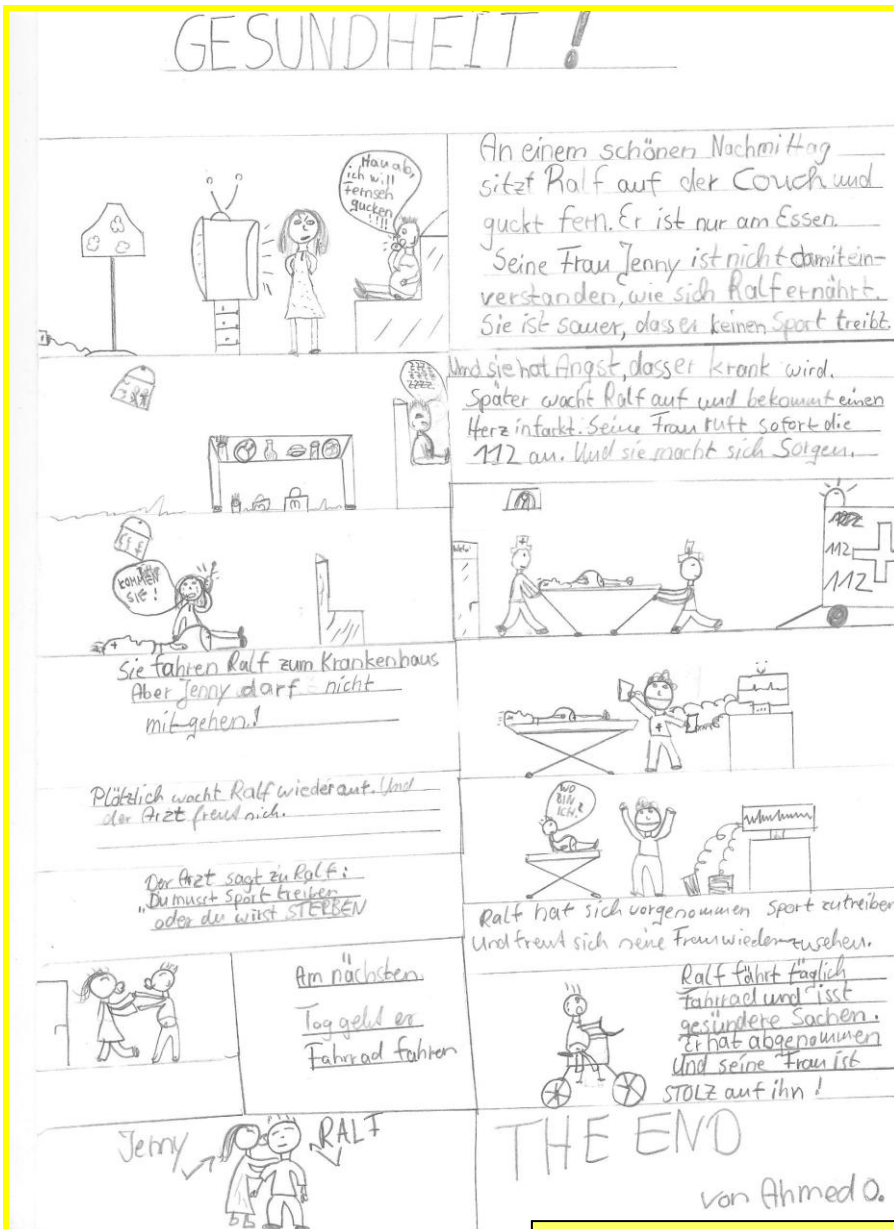 GESUNDHEIT !
Hau ab,
ich will
Fernseh
gucken
!!!!
An einem schönen Nachmittag
sitzt Ralf auf der Couch und
guckt fern. Er ist nur am Essen.
Seine Frau Jenny ist nicht damit ein-
verstanden, wie sich Ralf ernährt.
Sie ist sauer, dass er keinen Sport treibt.
Und sie hat Angst, dass er krank wird.
Später wacht Ralf auf und bekommt einen
Herzinfarkt. Seine Frau ruft sofort die
112 an. Und sie macht sich Sorgen.
KOMMEN
SIE!
112
112
Sie fahren Ralf zum Krankenhaus
Aber Jenny darf nicht
mitgehen!
Plötzlich wacht Ralf wieder auf. Und
der Arzt freut sich.
WO
BIN
ICH?
Der Arzt sagt zu Ralf:
"Du musst Sport treiben
oder du wirst STERBEN
Ralf hat sich vorgenommen Sport zutreiben
Und freut sich seine Frau wiederzusehen.
Am nächsten
Tag geht er
Fahrrad fahren
Ralf fährt täglich
Fahrrad und isst
gesündere Sachen.
Er hat abgenommen
Und seine Frau ist
STOLZ auf ihn!
Jenny
RALF
THE END
von Ahmed O.